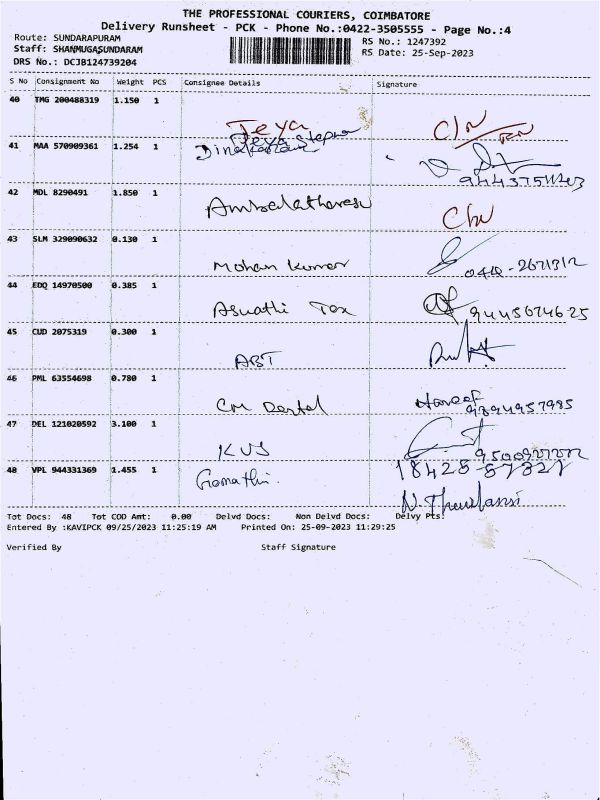 THE PROFESSIONAL COURIERS, COIMBATORE
Delivery Runsheet - PCK - Phone No.:0422-3505555 - Page No.:4
Route: SUNDARAPURAM
RS No.: 1247392
Staff: SHANMUGASUNDARAM
RS Date: 25-Sep-2023
DRS No.: DCJB124739204
S No Consignment No Weight PCS Consignee Details Signature
40 TMG 200488319 1.150 1
Jeya C/N
41 MAA 570909361 1.254 1
42 MDL 8290491 1.850 1
43 SLM 329090632 0.130 1
Mohan Kumar
44 EDQ 14970500 0.385 1
Asuathi Tex
45 CUD 2075319 0.300 1
ABT
46 PML 63554698 0.780 1
CM Dental Haneef
47 DEL 121020592 3.100 1
KVS
48 VPL 944331369 1.455 1
Gomathi.
Tot Docs: 48 Tot COD Amt: 0.00 Delvd Docs: Non Delvd Docs: Delvy Pts:
Entered By :KAVIPCK 09/25/2023 11:25:19 AM Printed On: 25-09-2023 11:29:25
Verified By Staff Signature